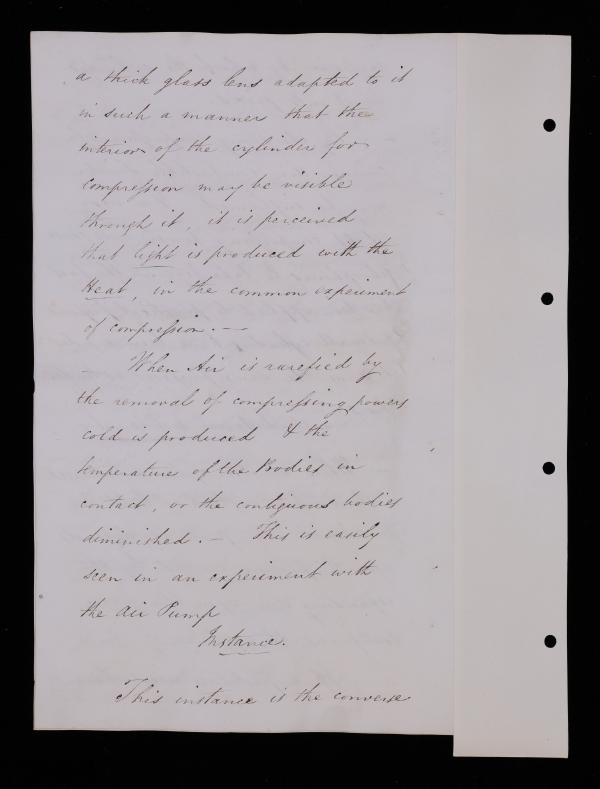 a thick glass lens adapted to it
in such a manner that the
interior of the cylinder for
compression may be visible
through it, it is perceived
that light is produced with the
Heat, in the common experiment
of compression. —
— When Air is rarefied by
the removal of compressing powers
cold is produced & the
temperature of the Bodies in
contact, or the contiguous bodies
diminished. — This is easily
seen in an experiment with
the Air Pump
Instance.
This instance is the converse